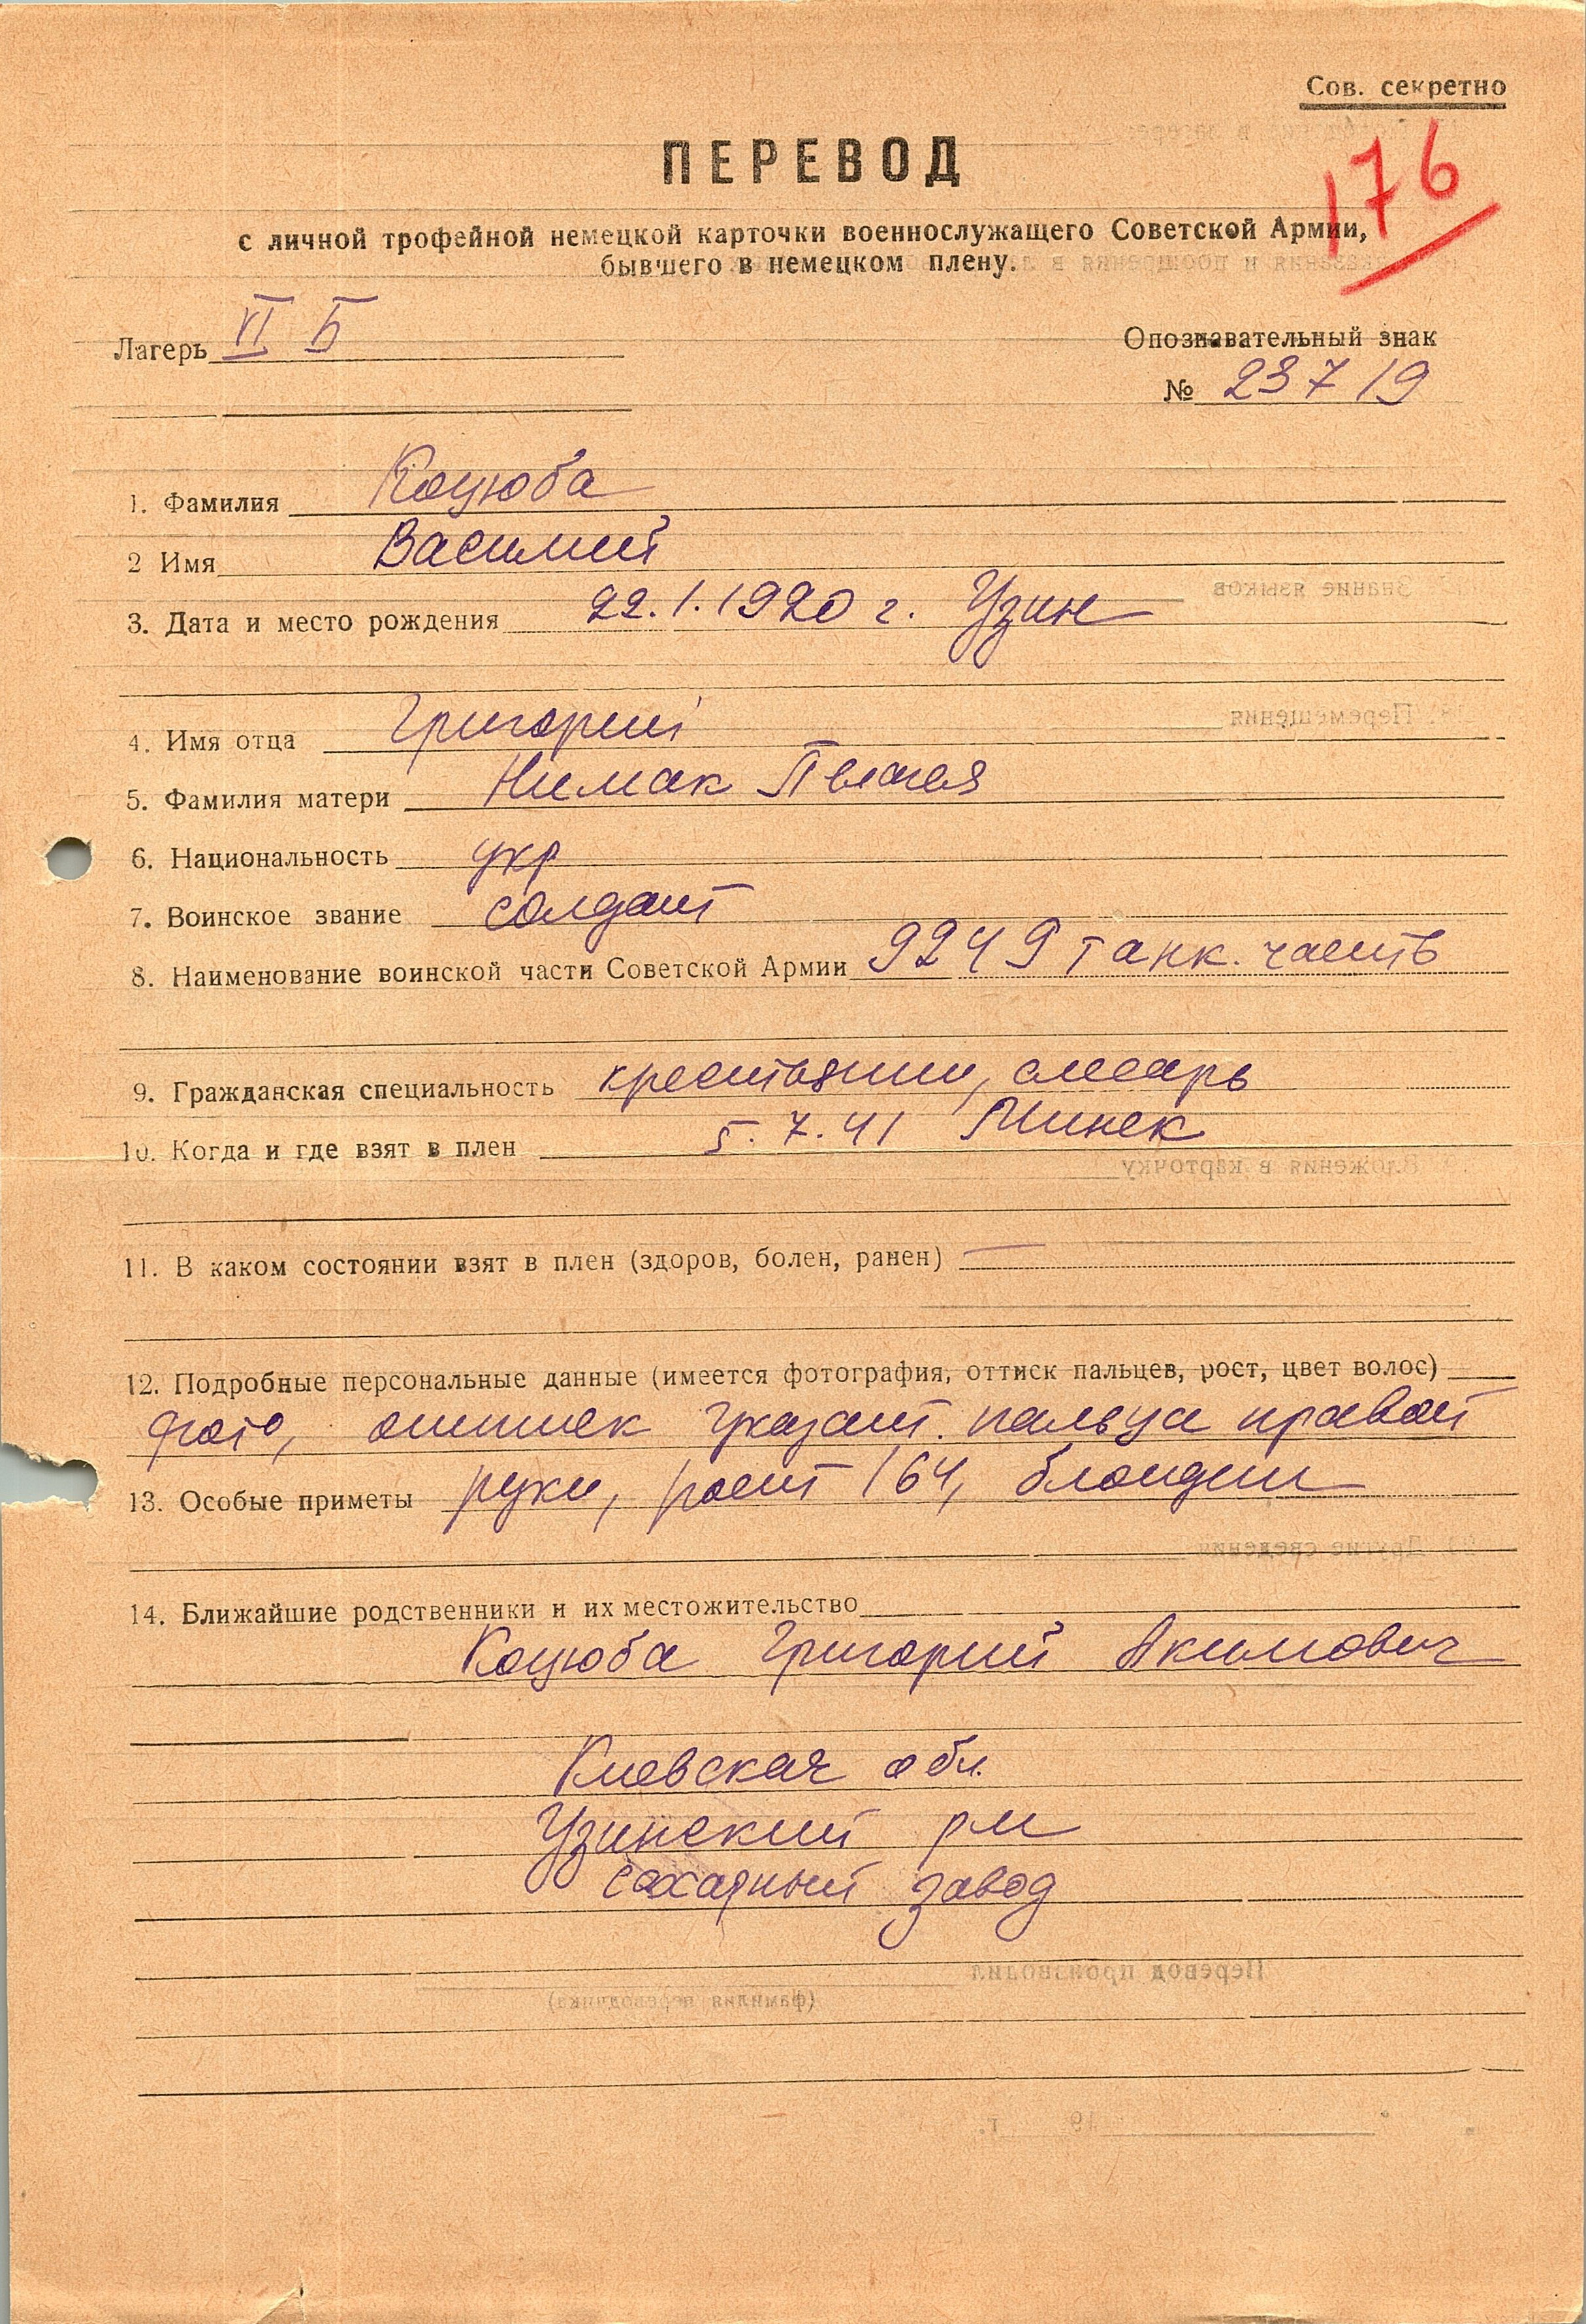 Сов. секретно
176
ПЕРЕВОД
с личной трофейной немецкой карточки военнослужащего Советской Армии,
бывшего в немецком плену.
Лагерь VI Б
Опознавательный знак
№ 23719
1. Фамилия Коцюба
2 Имя Василий
3. Дата и место рождения 22.1.1920 г. Узин
4. Имя отца Григорий
5. Фамилия матери Нимак
6. Национальность укр
7. Воинское звание солдат
8. Наименование воинской части Советской Армии 9249 танк. часть
9. Гражданская специальность крестьянин, слесарь
10. Когда и где взят в плен 5.7.41 Минск
11. В каком состоянии взят в плен (здоров, болен, ранен) —
12. Подробные персональные данные (имеется фотография, оттиск пальцев, рост, цвет волос)
фото, оттиск указат. пальца правой
13. Особые приметы руки, рост 164, блондин
14. Ближайшие родственники и их местожительство
Коцюба Григорий Акимович
Киевская обл.
Узинский рн
сахарный завод